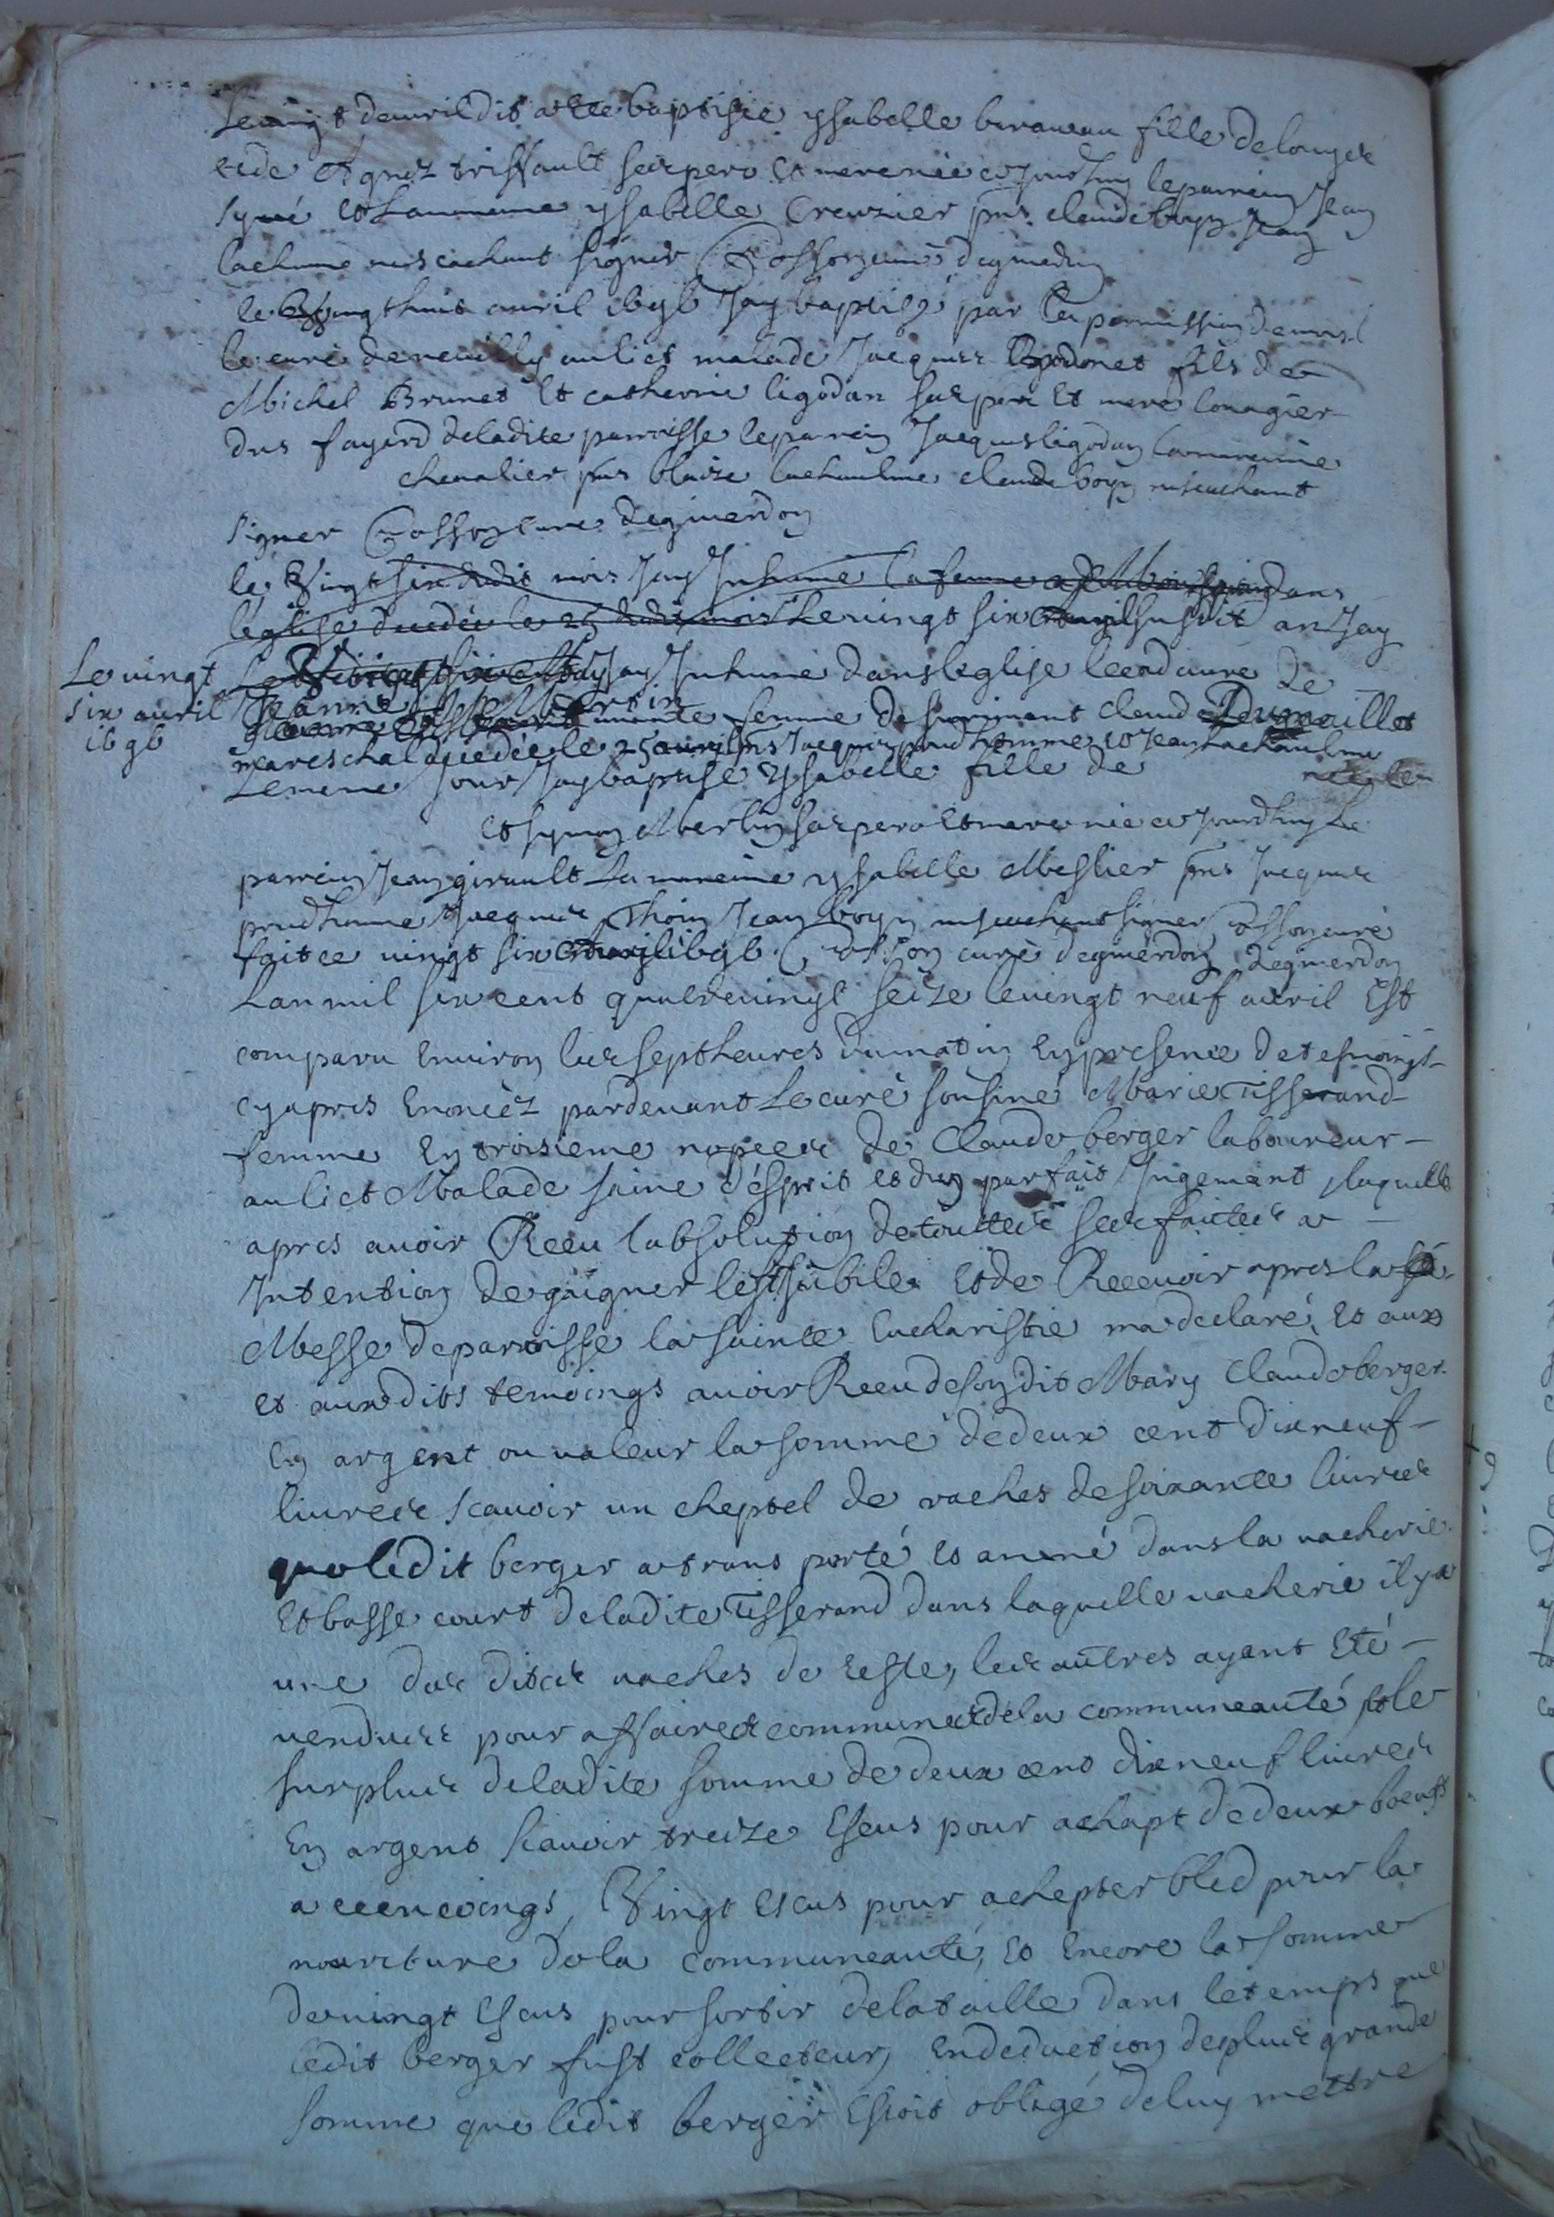 Le vingt d'avril dit a ete baptisée ysabelle beraueau fille de louyse
et de Agnez triffault ses pere et mere née ce jourdhuy le parrein Jean
et La mareine ysabelle Creuzier pns claude boyn Jean
lachaume ne scachant signer Cosson curé
le vingt huit avril 1696 Jay baptisé par la permission de mr
le curé de neuilly au lict malade Jacques fils de
Michel Brunet Et catherine ligodan ses pere Et mere
des fayard de ladite parroisse le parrein Jacques ligodan La mareine
chevalier pns blaise lachaulme claude boyn ne scachant
signer Cosson curé
le Vingt six dudit mois Jay Inhumé la femme dans
léglise decedée le 25 dudit mois Le vingt six avril susdit an Jay
Le vingt
six avril
1696
Jay Inhumé dans léglise le cadavre de
Jeanne Martin
femme de survivant claude
mareschal decedée le 25 avril pns Jacques prudhomme et Jean lachaulme
Le meme jour Jay baptisé Ysabelle fille de
et Merlin ses pere et mere née ce jourdhuy Le
parrein Jean girault La mareine ysabelle Meslier pns Jacques
prudhomme Jacques Thoin Jean boyn ne scachant signer Cosson curé
fait ce vingt six avril 1696. Cosson curé
Lan mil six cent quatrevingt seize le vingt neuf avril Est
comparu Environ les sept heures du matin En presence de tesmoings
cy apres Enoncéz pardevant Le curé sousiné Marie Tisserand
femme En troisieme nopces de Claude berger laboureur
au lict Malade saine d'esprit et dun parfait Jugement laquelle
apres avoir Receu labsolution de touttes ses fautes a
Intention de gaigner le St Jubile et de Recevoir apres la
Messe de parroisse la sainte Eucharistie ma declaré, et aux
et auxdits temoings avoir Receu de son dit Mary Claude berger
En argent ou valeur la somme de deux cent dixneuf
livres scavoir un cheptel de vaches de soixante livres
que ledit berger a trans porté et amené dans la vacherie
Et basse court de ladite Tisserand dans laquelle vacherie il y a
une des dites vaches de reste, les autres ayant Eté
vendues pour affaires communes de la communeauté et le
surplus de ladite somme de deux cent dixneuf livres
En argent scavoir treize Escus pour achapt de deux boeufs
a, Vingt Escus pour achepter bled pour la
nouriture de la communeauté, et Encore la somme
de vingt Escus pour sortir de la taille dans le temps que
ledit berger fust collecteur, En deduction de plus grande
somme que ledit berger Estoit obligé de luy mettre